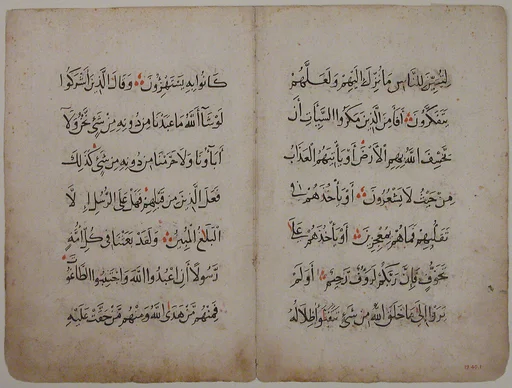 لتبين للناس ما نزل اليهم ولعلهم
يتفكرون أفأمن الذين مكروا السيئات أن
يخسف الله بهم الأرض أو يأتيهم العذاب
من حيث لا يشعرون أو يأخذهم في
تقلبهم فما هم بمعجزين أو يأخذهم على
تخوف فإن ربكم لرؤف رحيم أولم
يروا إلى ما خلق الله من شئ يتفيؤا ظلاله
كانوا به يستهزؤن وقال الذين أشركوا
لو شآ الله ما عبدنا من دونه من شئ نحن ولا
آباؤنا ولا حرمنا من دونه من شئ كذلك
فعل الذين من قبلهم فهل على الرسل إلا
البلاغ المبين ولقد بعثنا في كل أمة
رسولا أن اعبدوا الله واجتنبوا الطاغوت
فمنهم من هدى الله ومنهم من حقت عليه